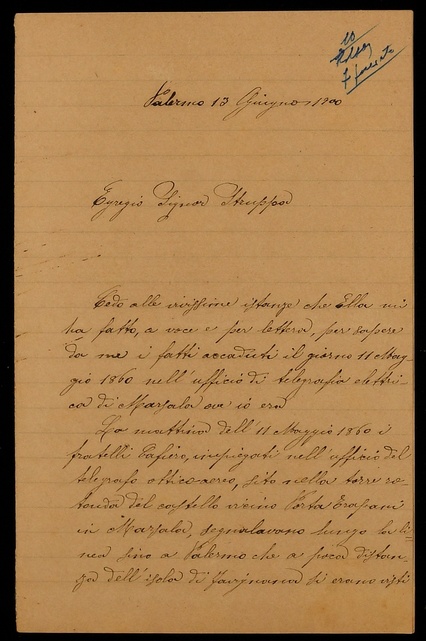 Palermo 13 Giugno 1900
Egregio Signor Struppa
Cedo alle vivissime istanze che Ella mi
ha fatto, a voce e per lettera, per sapere
da me i fatti accaduti il giorno 11 Mag-
gio 1860 nell'ufficio di telegrafia elettri-
ca di Marsala ov'io era
La mattina dell'11 Maggio 1860 i
fratelli impiegati nell'ufficio del
telegrafo ottico-aereo, sito nella torre ro-
tonda del castello vicino Porta Trapani
in Marsala, segnalavano lungo la li-
nea sino a Palermo che a poca distan-
za dell'isola di Favignana si erano visti